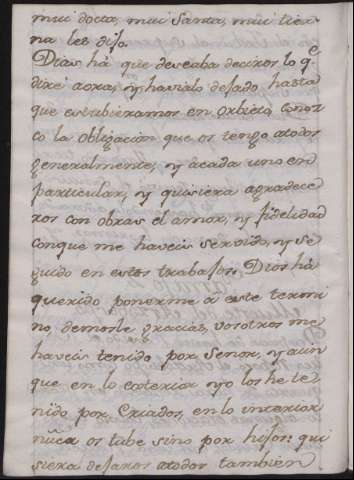 mui docta, mui Santa, mui tier-
na les dijo.
Dias há que deseaba deciros lo q̃.
diré aora, ÿ havialo dejado hasta
que estubieramos en Orbieto conoz-
co la obligazion que os tengo atodos
generalmente, ÿ ácada uno en
particular, ÿ quisiera agradece-
ros con obras el amor, ÿ fidelidad
conque me haveis servido, ÿ se-
guido en estos trabajos, Dios há
querido ponerme á este termi
no, demosle gracias, vosotros me
haveis tenido por Senor, ÿ aun
que en lo exterior ÿo los he te-
nido por Criados, en lo interior
nũca os tube sino por hijos: qui
siera dejaros atodos tambien